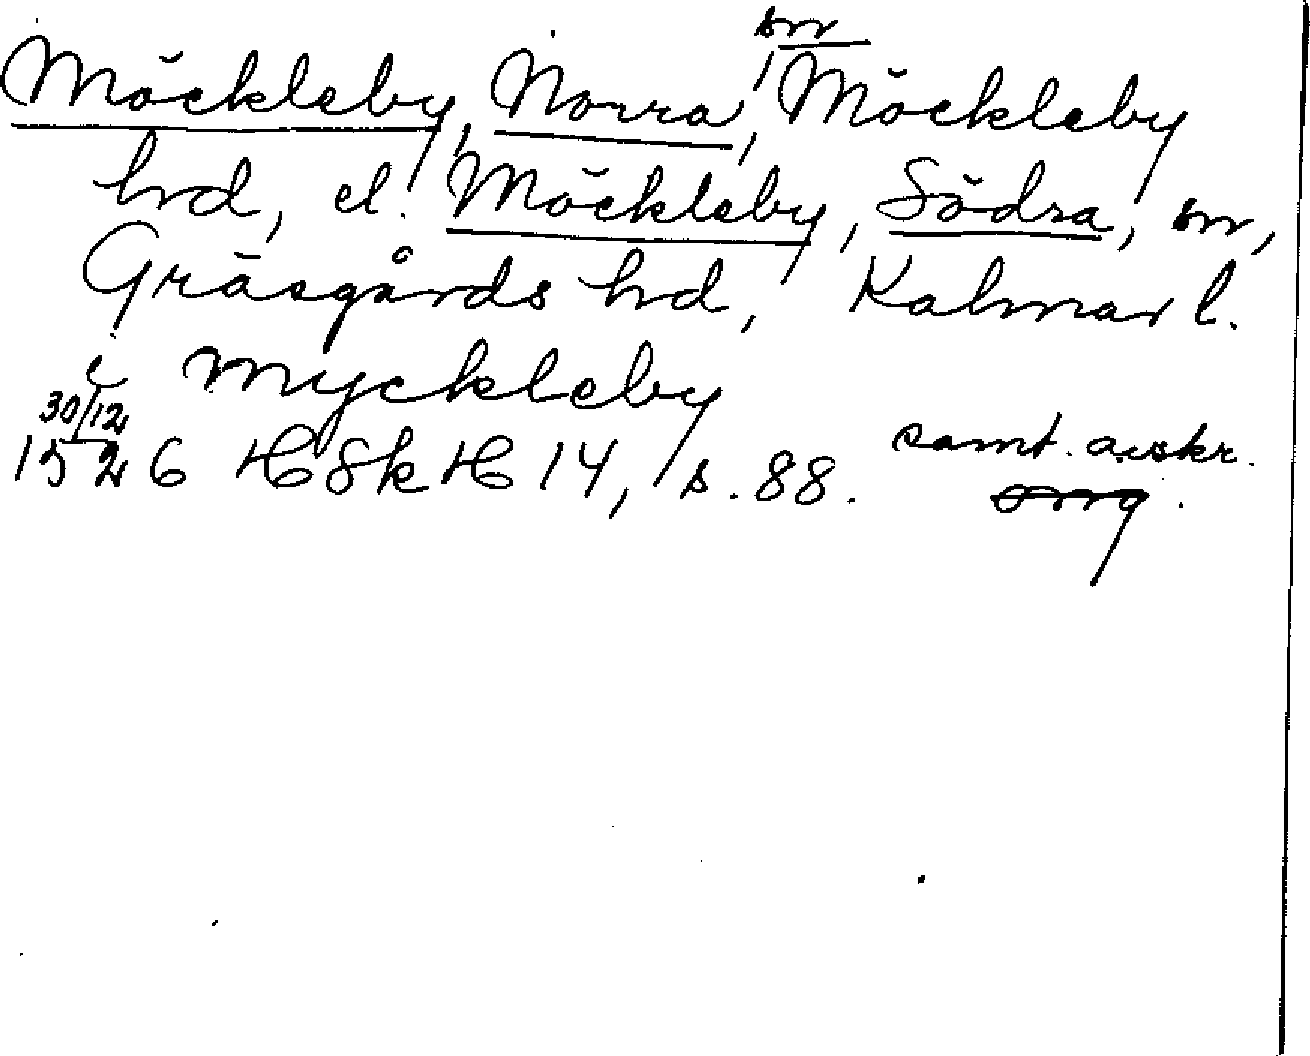 Möckleby, Norra, sn, Möckleby
hrd, el. Möckleby, Södra, sn,
Gräsgårds hrd, Kalmar l.
i Myckleby
30/12
1526 HSkH 14, s. 88. samt. avskr.